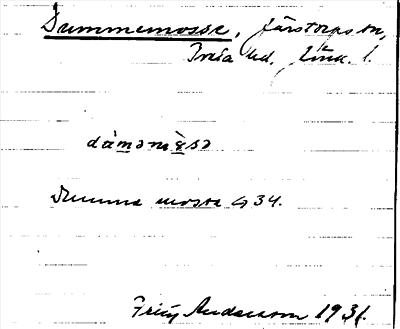 Dummemosse, Järstorps sn,
Tveta hd, Jönk. l.
dámamὲsə
Dumme mosse G 34.
Fritz Andersson 1931.